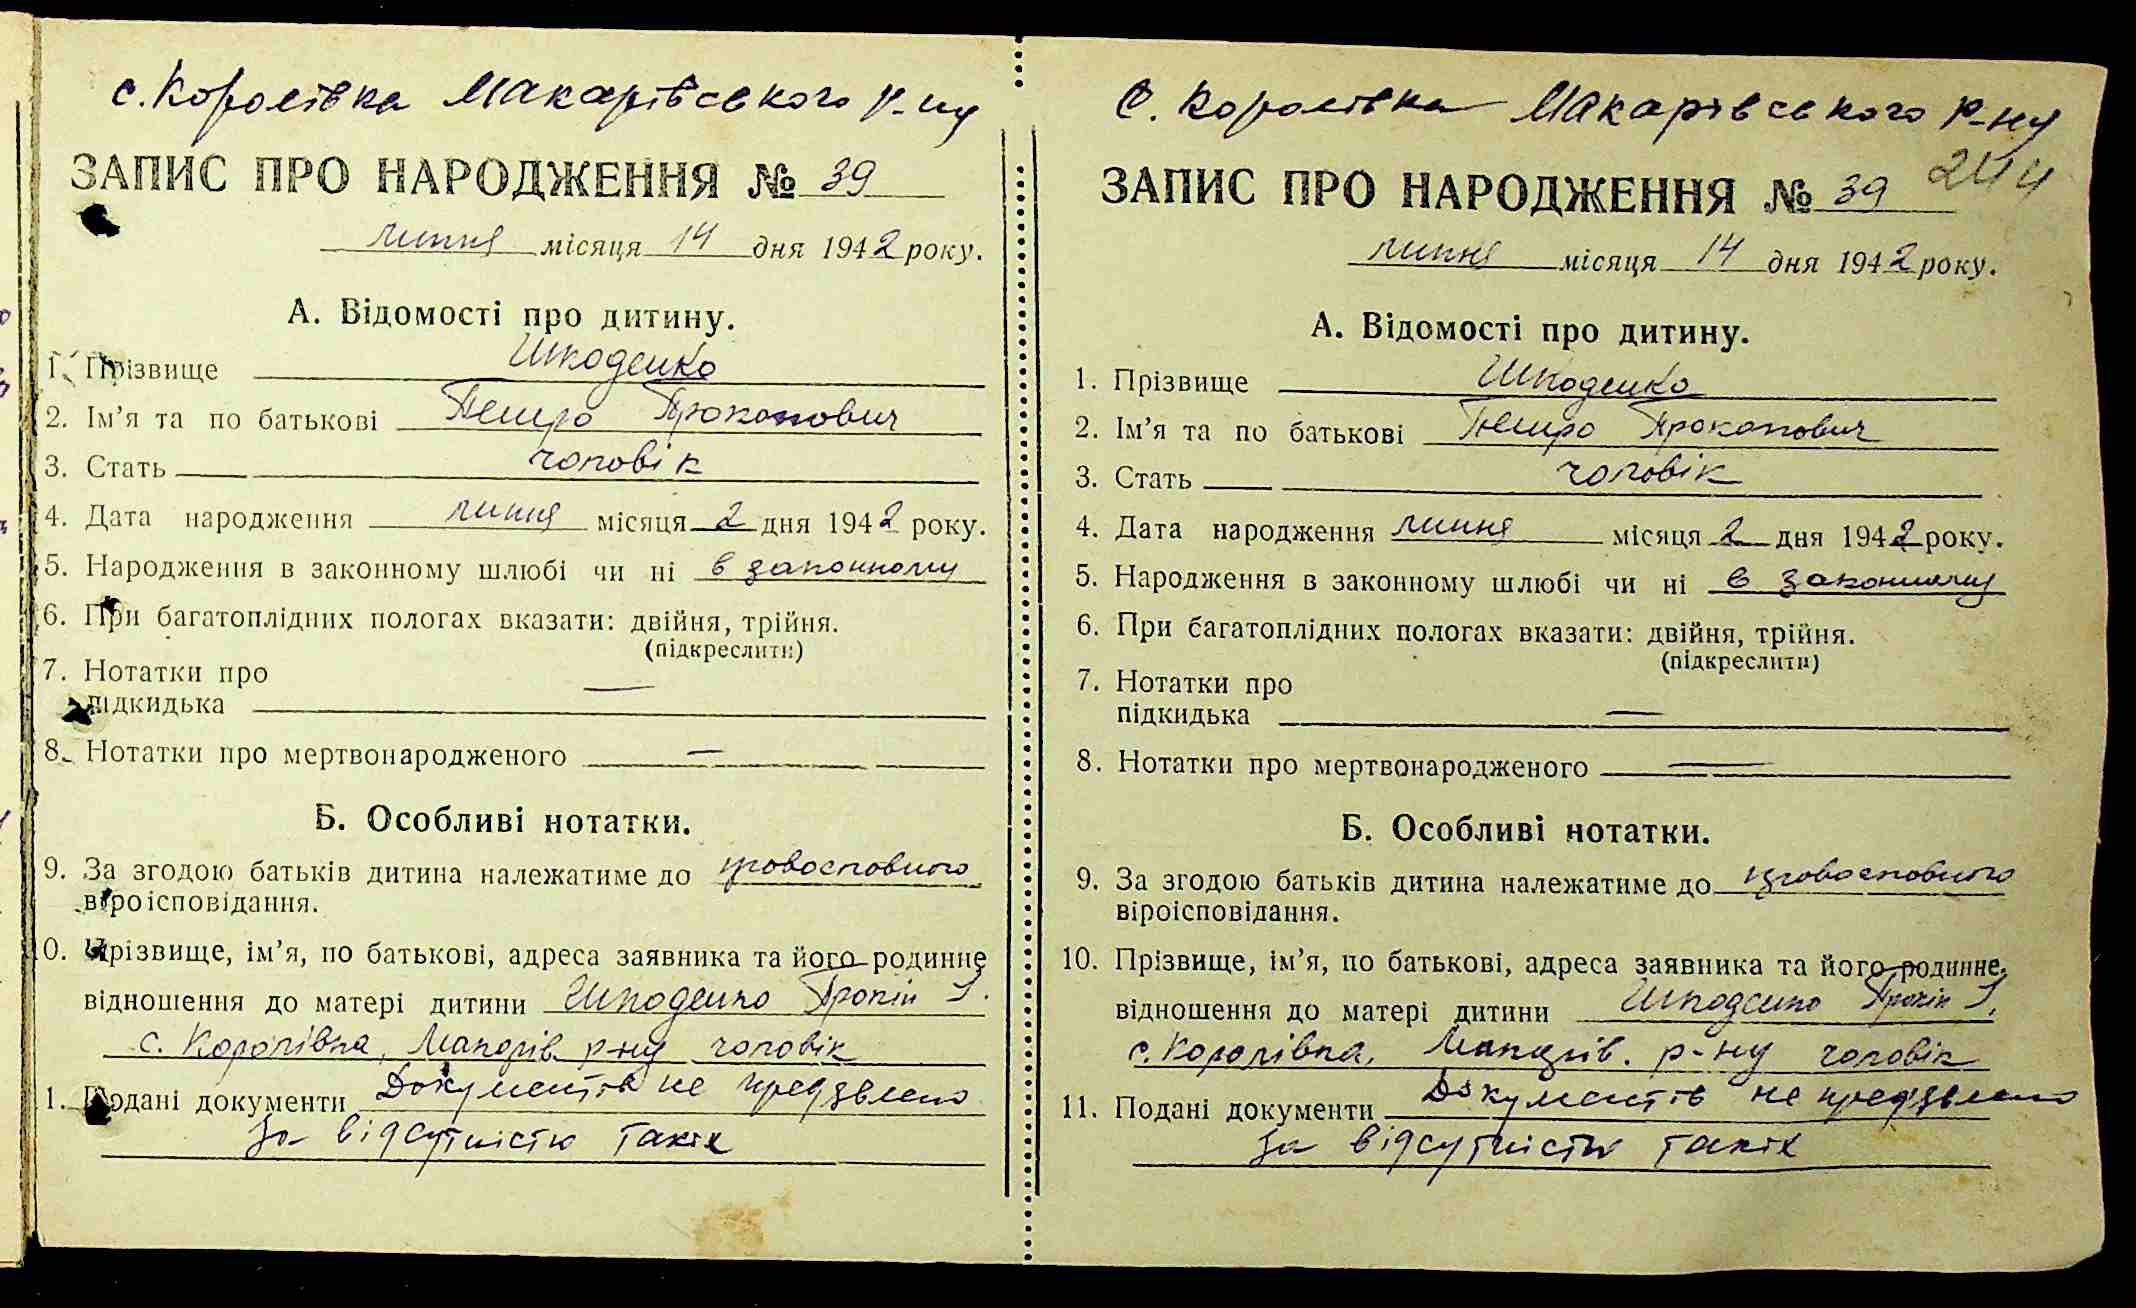 с. Королівка Макарівського р-ну
ЗАПИС ПРО НАРОДЖЕННЯ № 39
липня місяця 14 дня 1942 року.
А. Відомості про дитину.
1. Прізвище Шкоденко
2. Ім'я та по батькові Петро Прокопович
3. Стать чоловік
4. Дата народження липня місяця 2 дня 1942 року.
5. Народження в законному шлюбі чи ні в законному
6. При багатоплідних пологах вказати: двійня, трійня.
(підкреслити)
7. Нотатки про
підкидька —
8. Нотатки про мертвонародженого —
Б. Особливі нотатки.
9. За згодою батьків дитина належатиме до православного
віроісповідання.
0. Прізвище, ім'я, по батькові, адреса заявника та його родинне
відношення до матері дитини Шкоденко Прокіп І.
с. Королівка, Макарів. р-ну чоловік
1. Подані документи Документів не предявлено
за відсутністю таких
с. Королівка Макарівського р-ну
244
ЗАПИС ПРО НАРОДЖЕННЯ № 39
липня місяця 14 дня 1942 року.
А. Відомості про дитину.
1. Прізвище Шкоденко
2. Ім'я та по батькові Петро Прокопович
3. Стать чоловік
4. Дата народження липня місяця 2 дня 1942 року.
5. Народження в законному шлюбі чи ні в законному
6. При багатоплідних пологах вказати: двійня, трійня.
(підкреслити)
7. Нотатки про
підкидька —
8. Нотатки про мертвонародженого —
Б. Особливі нотатки.
9. За згодою батьків дитина належатиме до православного
віроісповідання.
10. Прізвище, ім'я, по батькові, адреса заявника та його родинне
відношення до матері дитини Шкоденко Прокіп І.
с. Королівка, Макарів. р-ну чоловік
11. Подані документи Документів не предявлено
за відсутністю таких